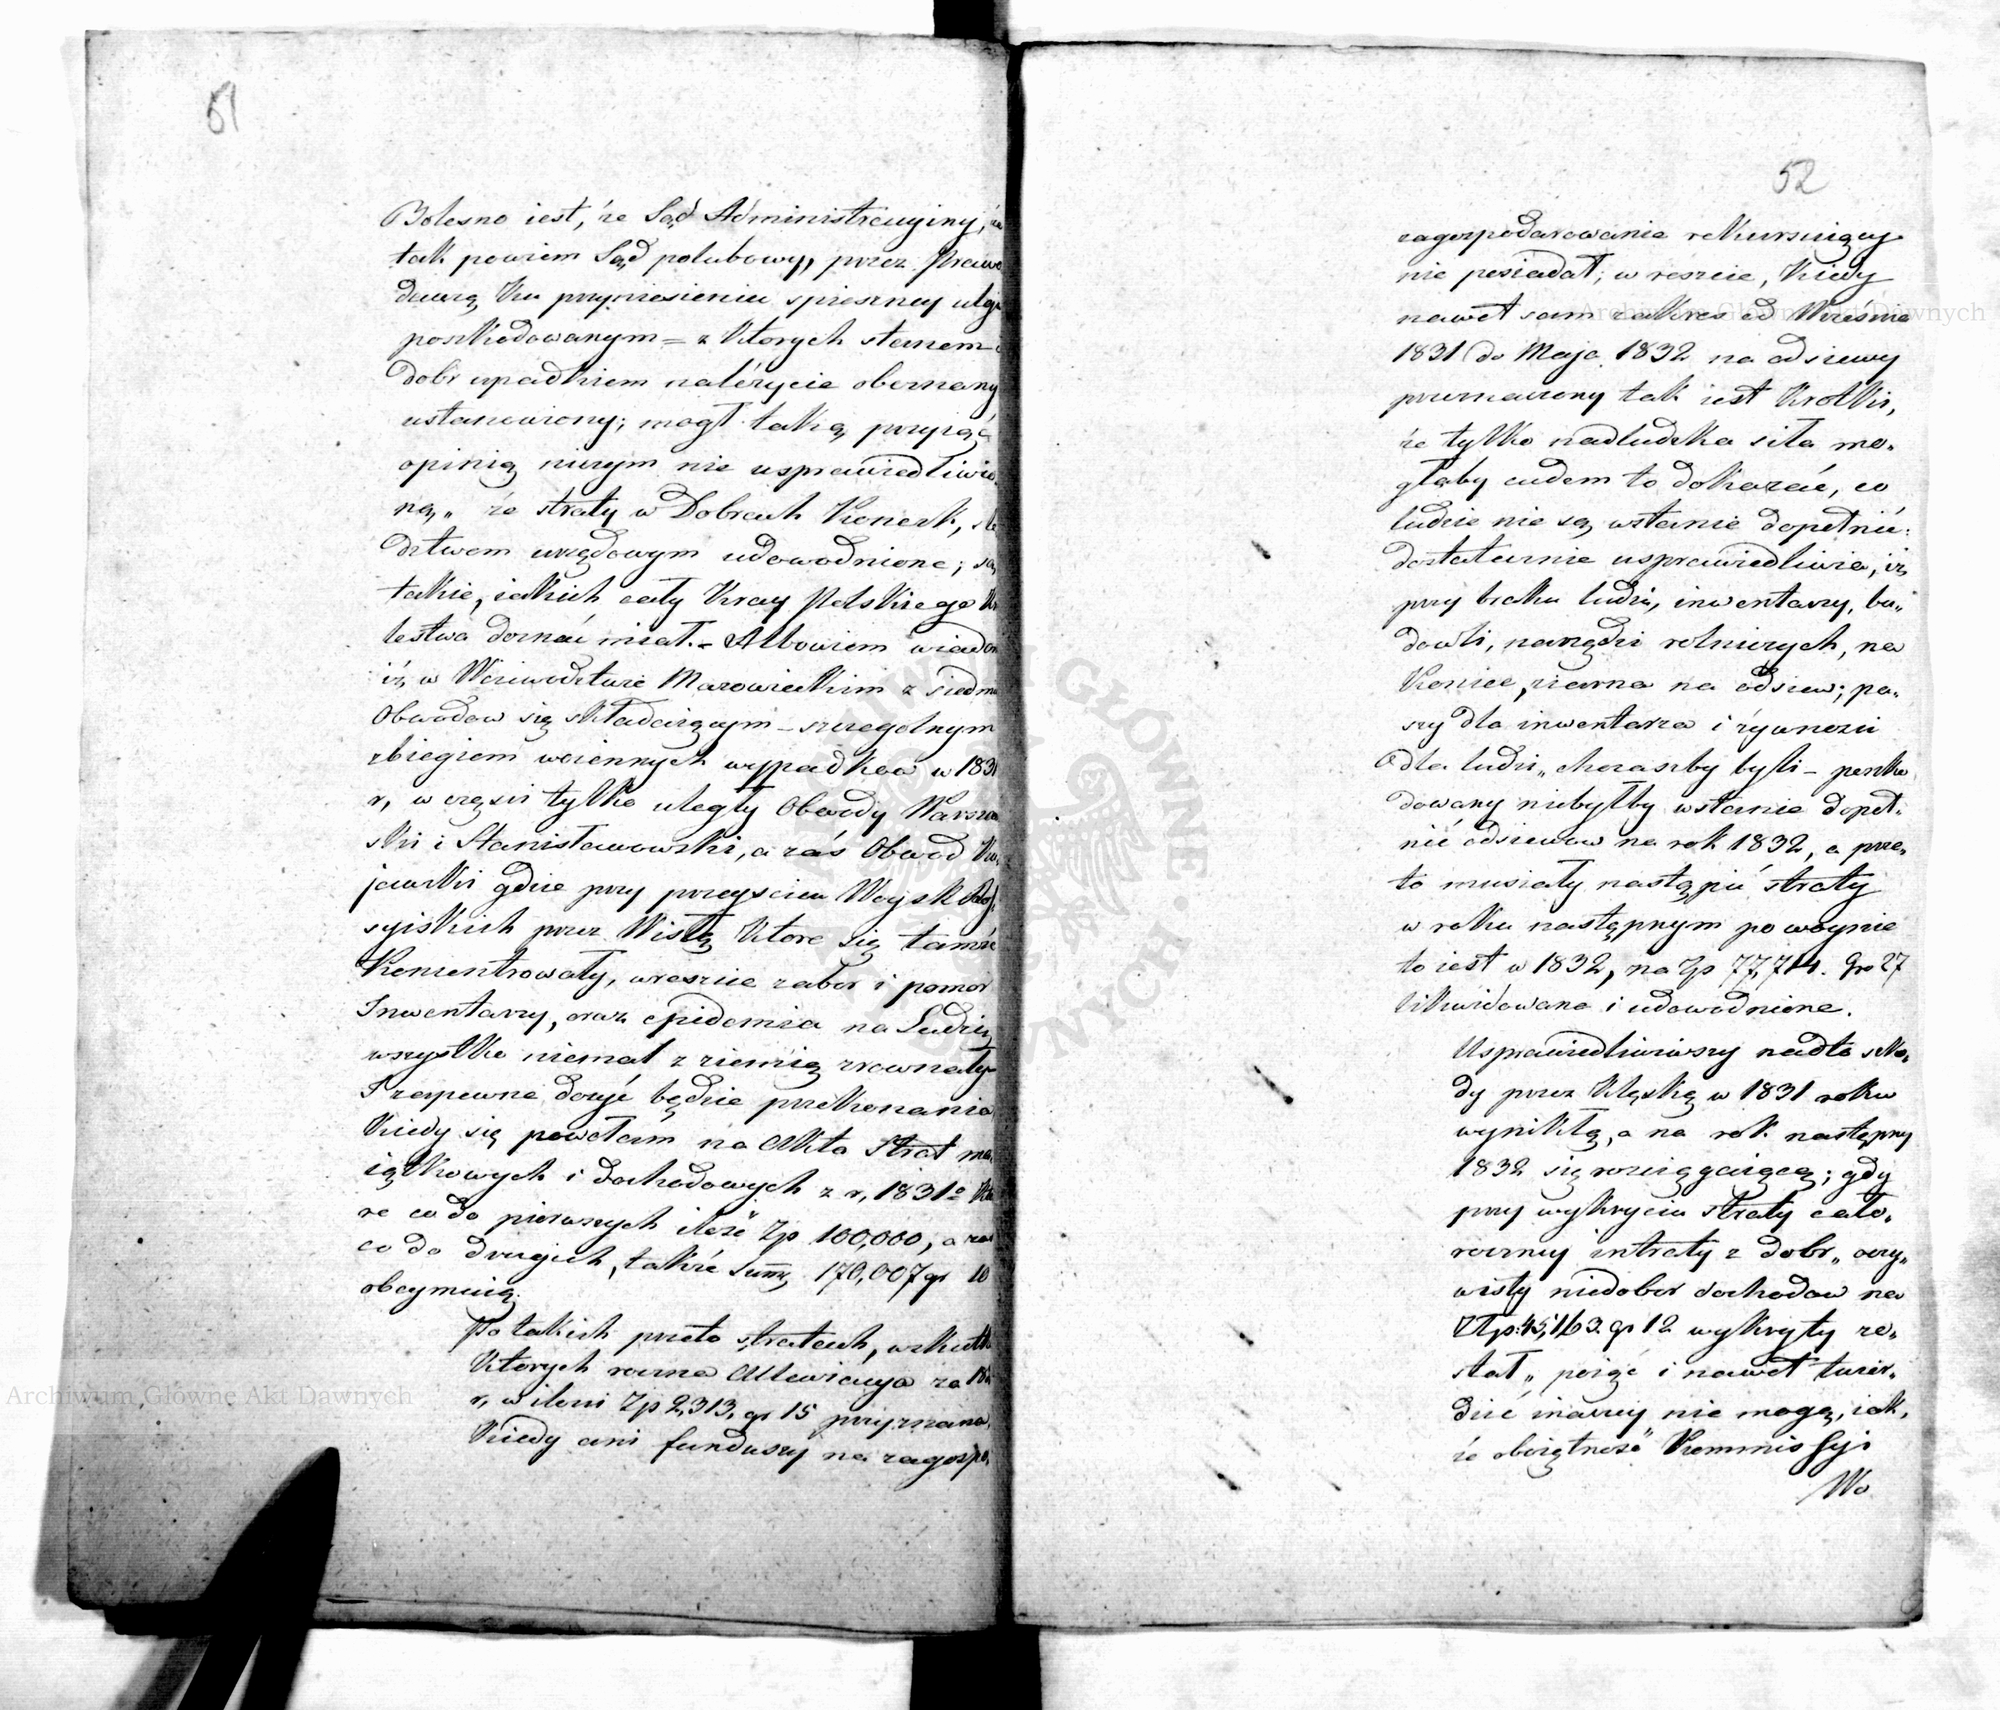 51
Bolesno iest, że Sąd Administracyiny, że
tak powiem Sąd polubowy, przez Prawo
dawcę ku przyniesieniu spieszney ulgi
poszkodowanym = z ktorych stanem
dobr upadkiem należycie obeznany
ustanowiony; mogł taką przyiąć
opinią niczym nie usprawiedliwio„
ną„ że straty w Dobrach Koneck, śle
dztwem urzędowym udowodnione; są
takie, iakich cały Kray Polskiego Kró
lestwa doznać miał. Albowiem wiadom
iż w Woiewodztwie Mazowieckim z siedmiu
Obwodow się składaiącym – szczegolnym
zbiegiem woiennych wypadkow w 1831
r, w części tylko uległy Obwody Warszaw
ski i Stanisławowski, a zaś Obwod Ku„
jawski gdzie przy przeyściu Woysk Ros„
syiskich przez Wisłę ktore się tamże
Koncentrowały, wreszcie zabor i pomor
Inwentarzy, oraz epidemia na Ludzi
wszystko niemal z ziemią zrownały
I zapewne dosyć będzie przekonania
kiedy się powołam na Akta Strat ma„
iątkowych i dochodowych z r, 1831º któ
re co do pierwszych ilość Zp 100,000, a zaś
co do drugich, także Summę 170,007 gr 10
obeymuią.
Po takich przeto stratach, wskutk
ktorych rowna Allewiacya za
r, w ilości Zp 2,313, gr 15 przyznana,
kiedy ani funduszy na zagospo„
52
zagospodarowanie rekursuiący
nie posiadał; w reszcie, kiedy
nawet sam zakres od Wrześnie
1831 do Maja 1832 na odsiewy
przeznaczony tak iest Krotki,
że tylko nadludzka siła mo„
głaby cudem to dokazać, co
ludzie nie są wstanie dopełnić:
dostatecznie usprawiedliwia, iż
przy braku ludzi, inwentarzy, bu„
dowli, narzędzi rolniczych, na
koniec, ziarna na odsiew; pa„
szy dla inwentarza i żywności
dla ludzi„ chociażby byli – poszko
dowany niebyłby wstanie dopeł„
nić odsiewow na rok 1832, a prze„
to musiały nastąpić straty
w roku następnym po woynie
to iest w 1832, na Zp 77,714. Gr 27
likwidowane i udowodnione.
Usprawiedliwiwszy nadto szko„
dy przez klęskę w 1831 roku
wynikłą, a na rok następny
1832 się rozciągaiącą; gdy
przy wykryciu straty cało„
roczney intraty z dobr„ oczy„
wisty niedobor dochodow na
Złp: 45,163. gr 12 wykryty zo„
stał„ poiąć i nawet twier„
dzić inaczey nie mogę, iak,
że oboiętność Kommissyi
Wo
Archiwum Główne Akt Dawnych
Archiwum Główne Akt Dawnych
ARCHIWUM GŁÓWNE AKT DAWNYCH